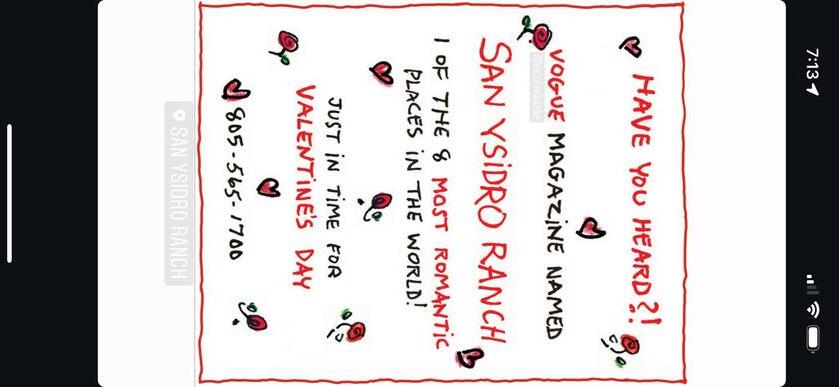 7:13
HAVE YOU HEARD?!
VOGUE MAGAZINE NAMED
SAN YSIDRO RANCH
1 OF THE 8 MOST ROMANTIC
PLACES IN THE WORLD!
JUST IN TIME FOR
VALENTINE'S DAY
805-565-1700
SAN YSIDRO RANCH